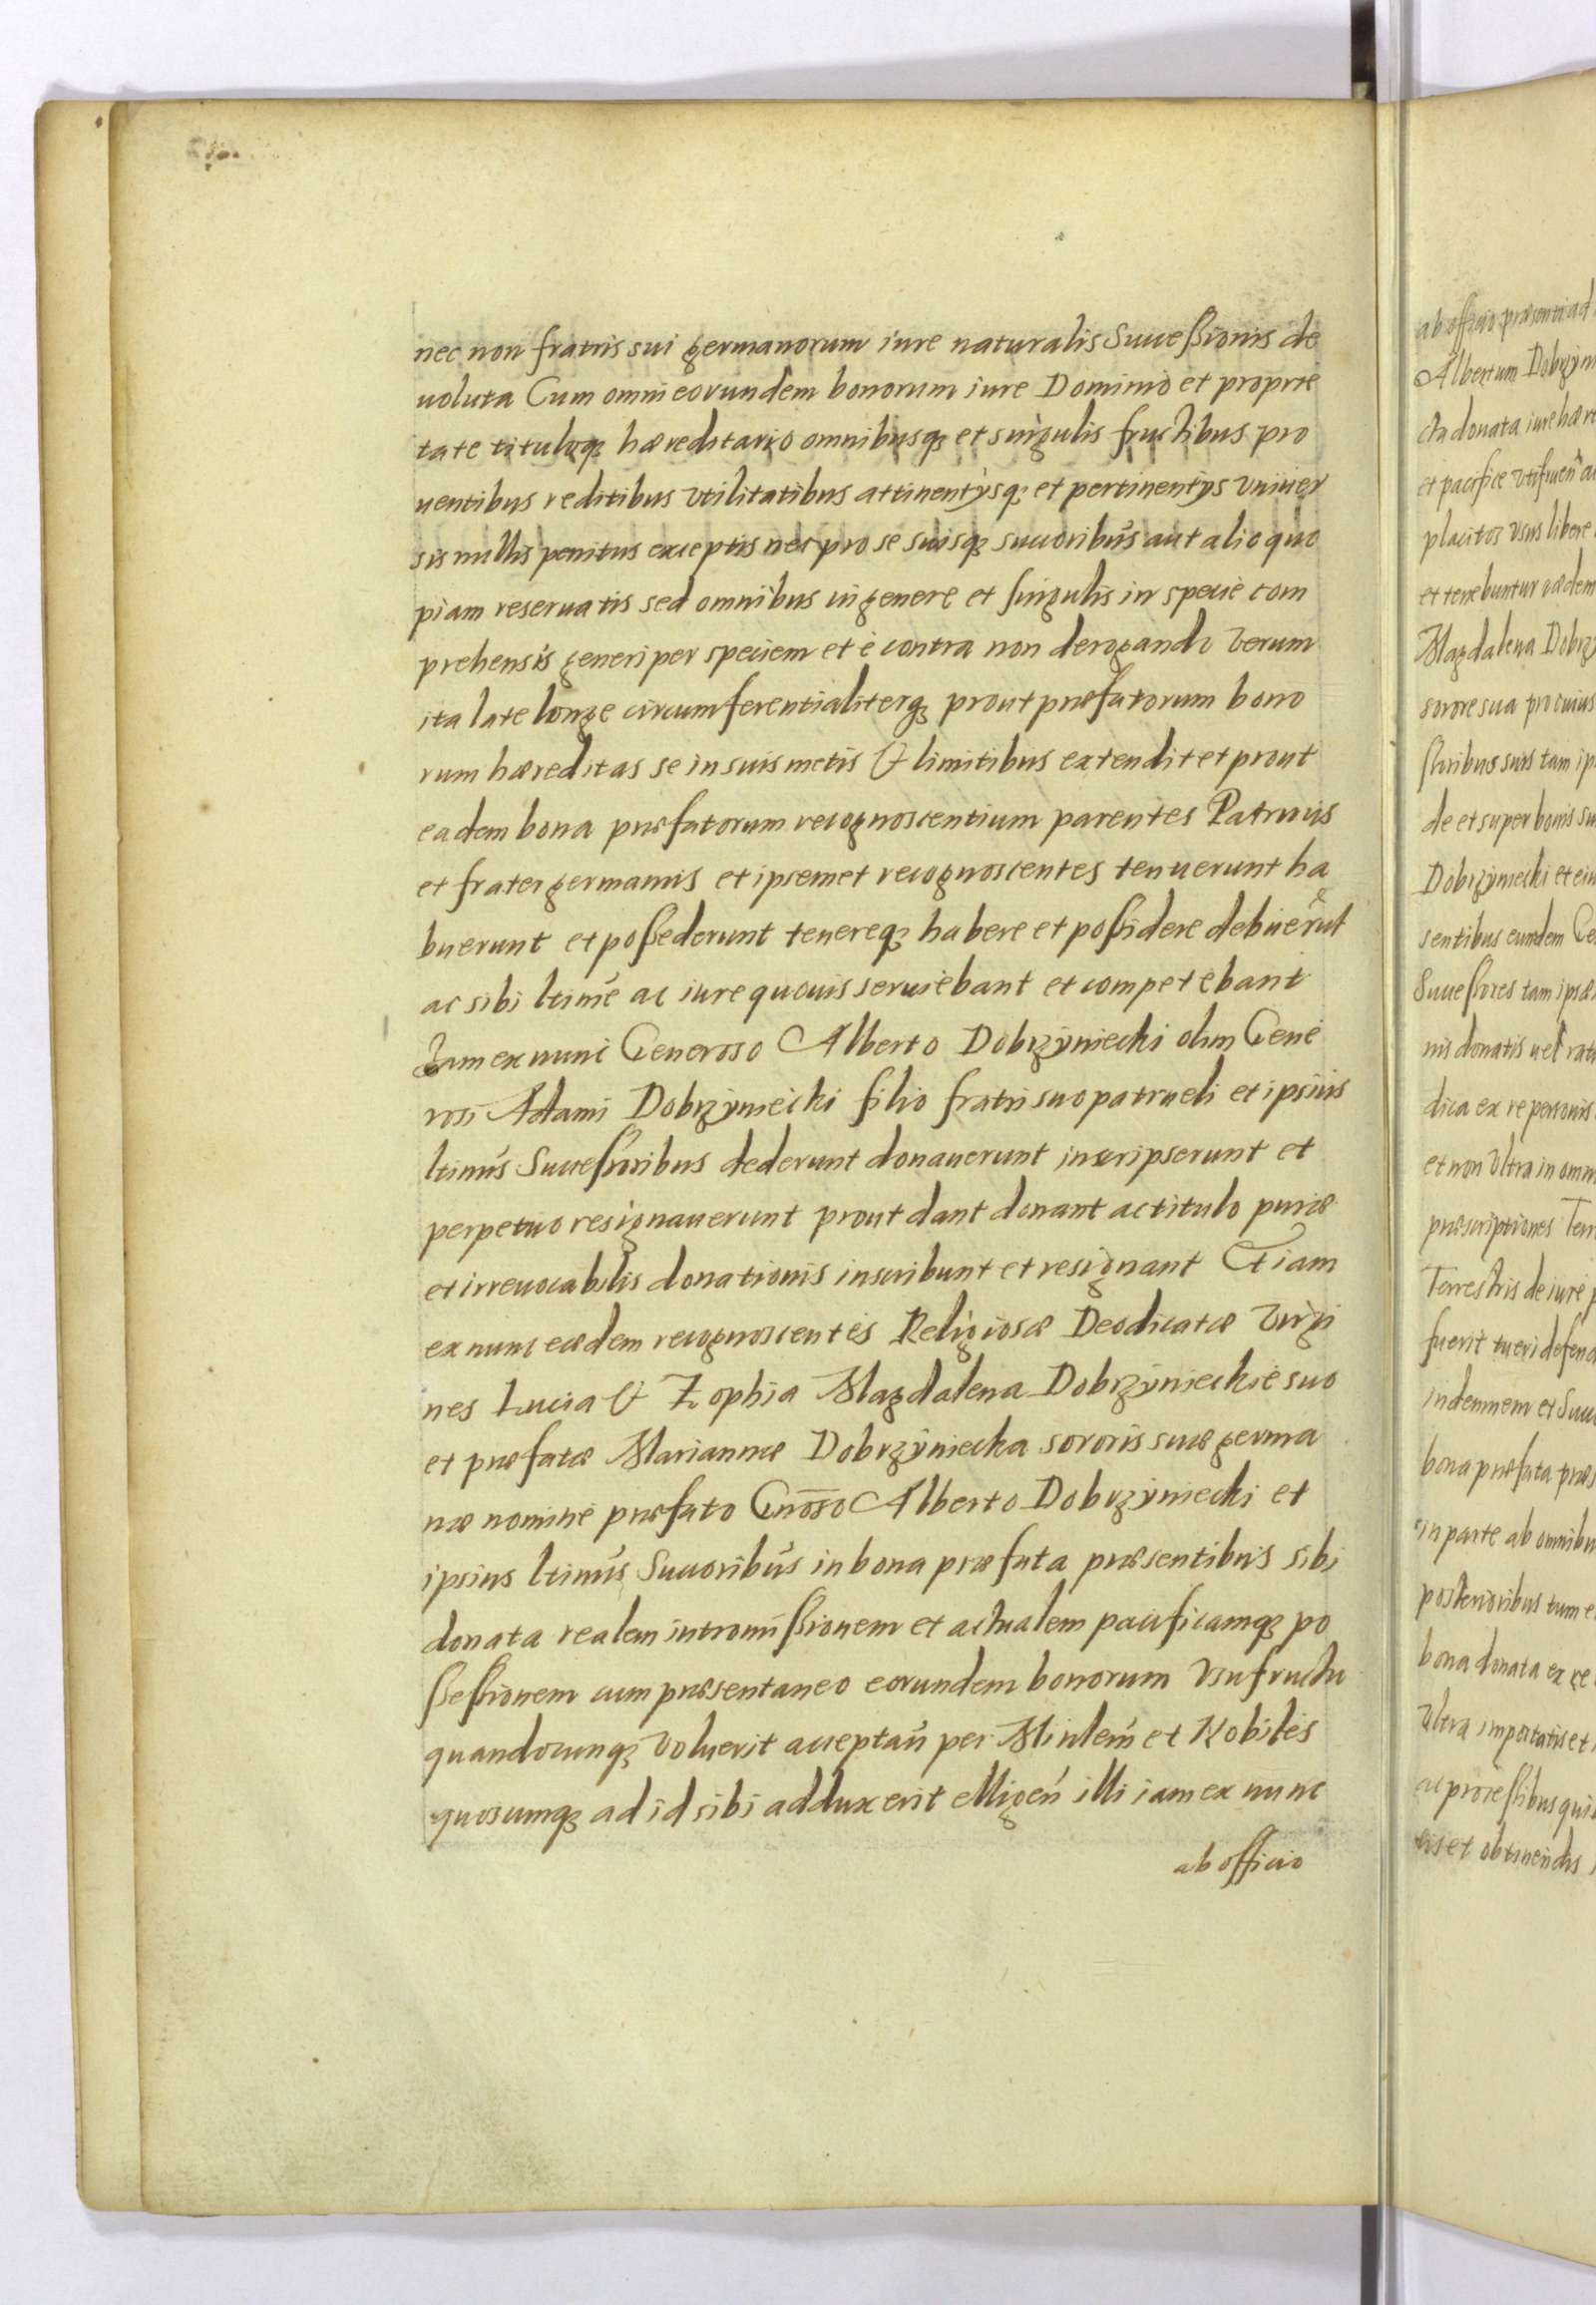 nec non fratris sui germanorum iure naturalis Successionis de
uoluta Cum omni eorundem bonorum iure Dominio et proprie
tate tituloq₃ hæreditario omnibusq₃ et singulis fructibus pro
uentibus reditibus vtilitatibus attinentÿsq₃ et pertinentÿs vniuer
sis nullis penitus exceptis nec pro se suisq₃ succoribus̄ aut alio quo
piam reseruatis sed omnibus in genere et singulis in specie com
prehensis generi per speciem et è contra non derogando verum
ita late longe circumferentialiterq₃ prout præfatorum bono
rum hæreditas se in suis metis & limitibus extendit et prout
eadem bona præfatorum recognoscentium parentes Patruus
et frater germanus et ipsemet recognoscentes tenuerunt ha
buerunt et possederunt tenereq₃ habere et possidere debuerūt
ac sibi ltimē ac iure quouis seruiebant et competebant
Iam ex nunc Generoso Alberto Dobrzÿniecki olim Gene
rosi Adami Dobrzÿniecki filio fratri suo patrueli et ipsius
ltimūs Successoribus dederunt donauerunt inscripserunt et
perpetuo resignauerunt prout dant donant ac titulo puræ
et irreuocabilis donationis inscribunt et resignant Etiam
ex nunc eædem recognoscentes Religiosæ Deodicatæ Virgi
nes Lucia & Zophia Magdalena Dobrzÿnieckie suo
et præfatæ Mariannæ Dobrzÿniecka sororis suæ germa
næ nomine præfato Gnōso Alberto Dobrzÿniecki et
ipsius ltimūs Succoribūs in bona præfata præsentibus sibi
donata realem intromissionem et actualem pacificamq₃ po
ssessionem cum præsentaneo eorundem bonorum vsufructu
quandocunq₃ voluerit acceptan̄ per Minlem̄ et Nobiles
quoscumq₃ ad id sibi adduxerit elligen̄ illi iam ex nunc
ab officio
ab officio præsenti ad
Albertum Dobrzÿn
cta donata iure hære
et pacifice vtifruen̄
placitos vsus libere
et tenebuntur eædem
Magdalena Dobrz
sorore sua pro cuius
ssoribus suis tam ip
de et super bonis su
Dobrzÿniecki et eiu
sentibus eundem Ge
Successores tam ipsæ
nis donatis uel rat
dica ex re personis
et non vltra in omn
præscriptiones Terr
Terrestris de iure p
fuerit tueri defend
indemnem et Succ
bona præfata præs
in parte ab omnibu
posterioribus tum e
bona donata ex re
vltra impetratis et
ac processibus quis
et obtinendis